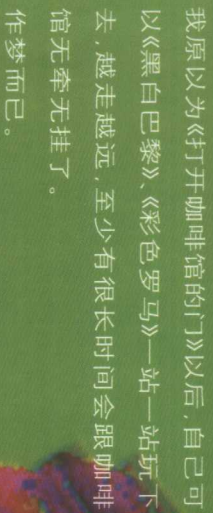 我原以为《打开咖啡馆的门》以后,自己可
以《黑白巴黎》、《彩色罗马》一站一站玩下
去,越走越远,至少有很长时间会跟咖啡
馆无牵无挂了。
作梦而已。